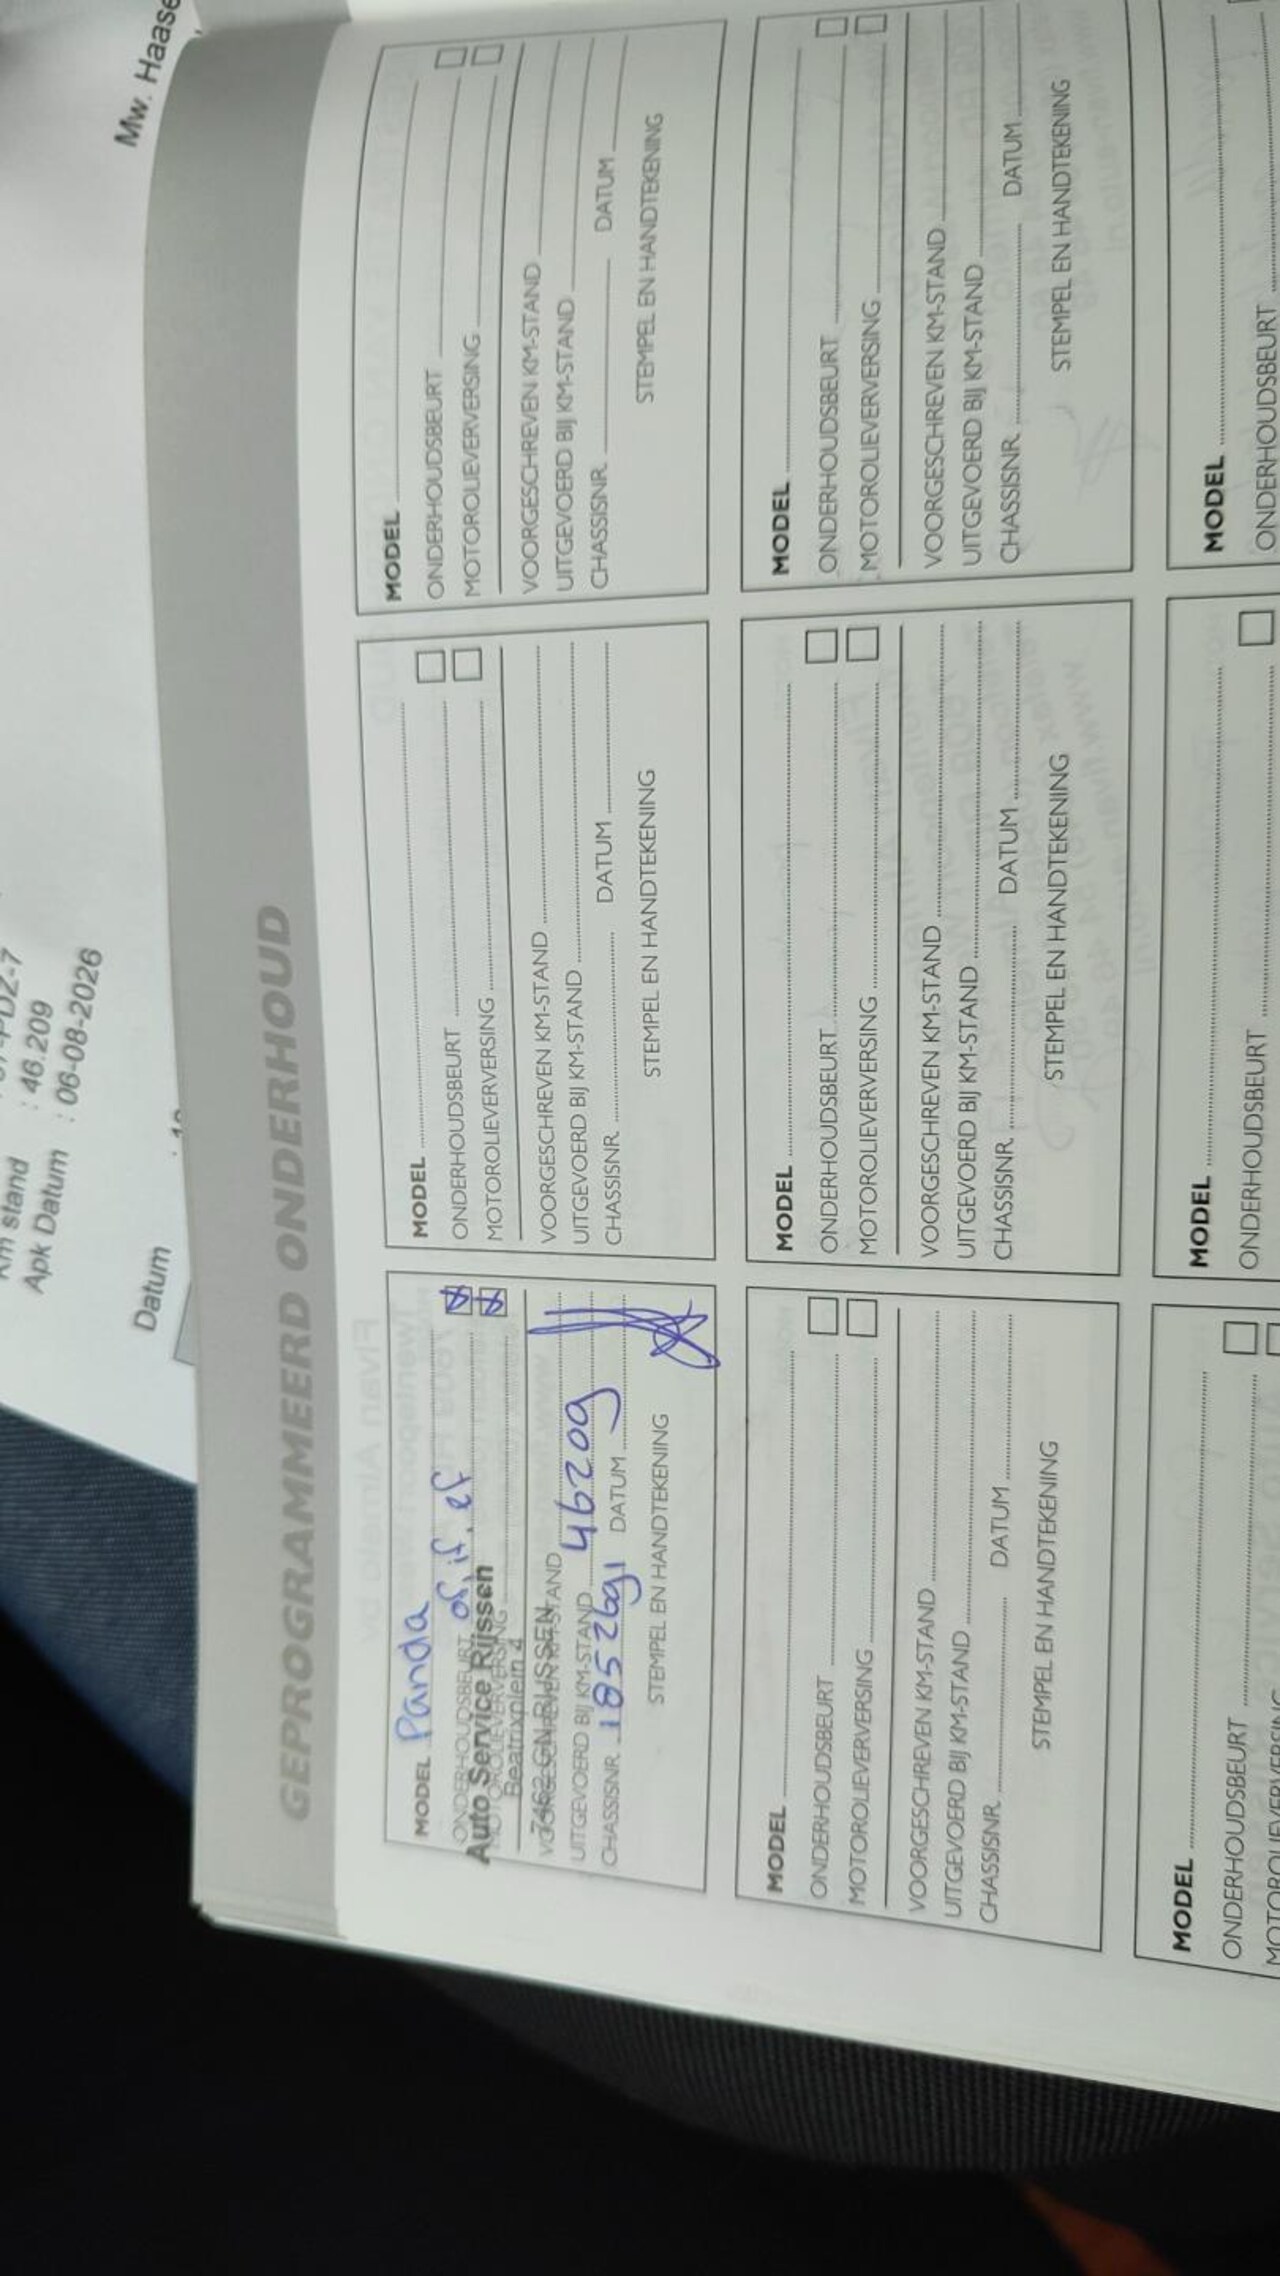 Mw. Haase
Km stand : 46.209
Apk Datum : 06-08-2026
Datum
GEPROGRAMMEERD ONDERHOUD
MODEL Panda
ONDERHOUDSBEURT of, if, ef
MOTOROLIEVERVERSING
Auto Service Rijssen
Beatrixplein 4
7462 GN RIJSSEN
VOORGESCHREVEN KM-STAND
UITGEVOERD BIJ KM-STAND 46209
CHASSISNR. DATUM
STEMPEL EN HANDTEKENING
MODEL
ONDERHOUDSBEURT
MOTOROLIEVERVERSING
VOORGESCHREVEN KM-STAND
UITGEVOERD BIJ KM-STAND
CHASSISNR. DATUM
STEMPEL EN HANDTEKENING
MODEL
ONDERHOUDSBEURT
MOTOROLIEVERVERSING
VOORGESCHREVEN KM-STAND
UITGEVOERD BIJ KM-STAND
CHASSISNR. DATUM
STEMPEL EN HANDTEKENING
MODEL
ONDERHOUDSBEURT
MOTOROLIEVERVERSING
VOORGESCHREVEN KM-STAND
UITGEVOERD BIJ KM-STAND
CHASSISNR. DATUM
STEMPEL EN HANDTEKENING
MODEL
ONDERHOUDSBEURT
MOTOROLIEVERVERSING
VOORGESCHREVEN KM-STAND
UITGEVOERD BIJ KM-STAND
CHASSISNR. DATUM
STEMPEL EN HANDTEKENING
MODEL
ONDERHOUDSBEURT
MOTOROLIEVERVERSING
VOORGESCHREVEN KM-STAND
UITGEVOERD BIJ KM-STAND
CHASSISNR. DATUM
STEMPEL EN HANDTEKENING
MODEL
ONDERHOUDSBEURT
MOTOROLIEVERVERSING
MODEL
ONDERHOUDSBEURT
MODEL
ONDERHOUDSBEURT